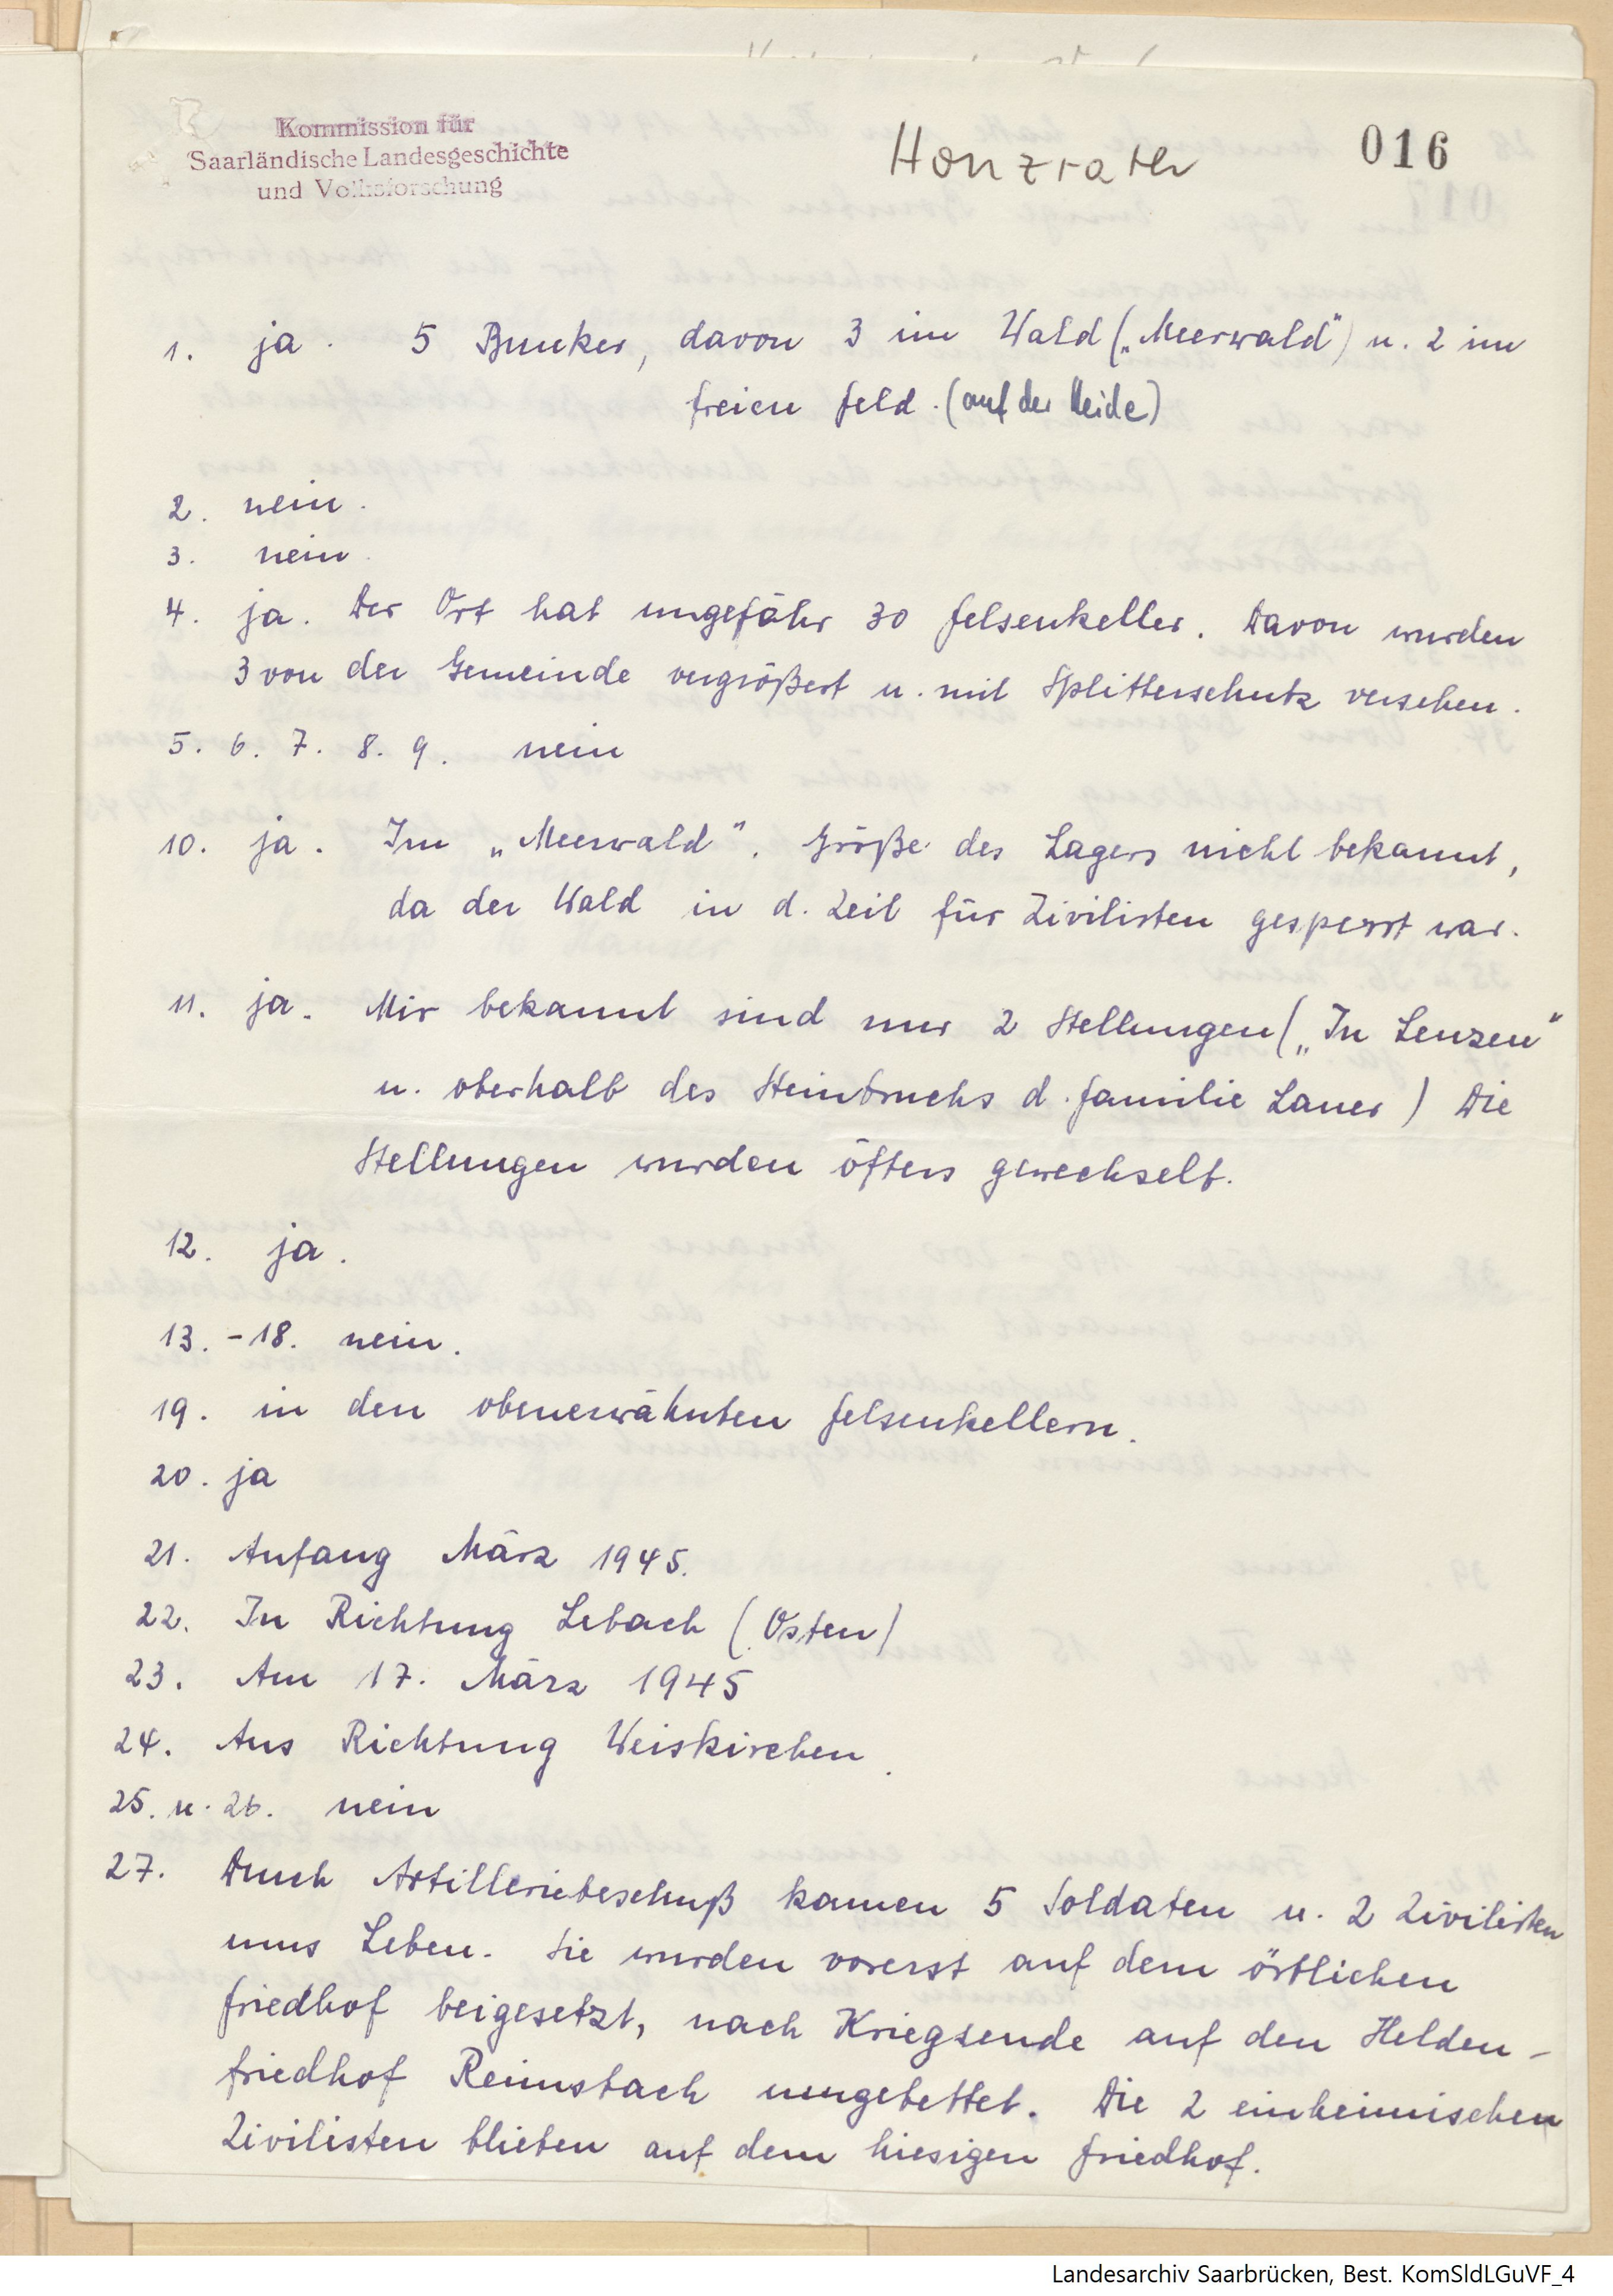 Kommission für
Saarländische Landesgeschichte
und Volksforschung
Honzrath
016
1. ja. 5 Bunker, davon 3 im Wald („Meerwald“) u. 2 im
freien Feld. (auf der Heide)
2. nein.
3. nein.
4. ja. Der Ort hat ungefähr 30 Felsenkeller. Davon wurden
3 von der Gemeinde vergrößert u. mit Splitterschutz versehen.
5. 6. 7. 8. 9. nein
10. ja. Im „Meerwald“. Größe des Lagers nicht bekannt,
da der Wald in d. Zeit für Zivilisten gesperrt war.
11. ja. Mir bekannt sind nur 2 Stellungen („In Lenzen“
u. oberhalb des Steinbruchs d. Familie Lauer) Die
Stellungen wurden öfters gewechselt.
12. ja.
13. - 18. nein.
19. in den obenerwähnten Felsenkellern.
20. ja
21. Anfang März 1945.
22. In Richtung Lebach (Osten)
23. Am 17. März 1945
24. Aus Richtung Weiskirchen.
25. u. 26. nein
27. Durch Artilleriebeschuß kamen 5 Soldaten u. 2 Zivilisten
ums Leben. Sie wurden vorerst auf dem örtlichen
Friedhof beigesetzt, nach Kriegsende auf den Helden-
friedhof Reimsbach umgebettet. Die 2 einheimischen
Zivilisten blieben auf dem hiesigen Friedhof.
Landesarchiv Saarbrücken, Best. KomSldLGuVF_4